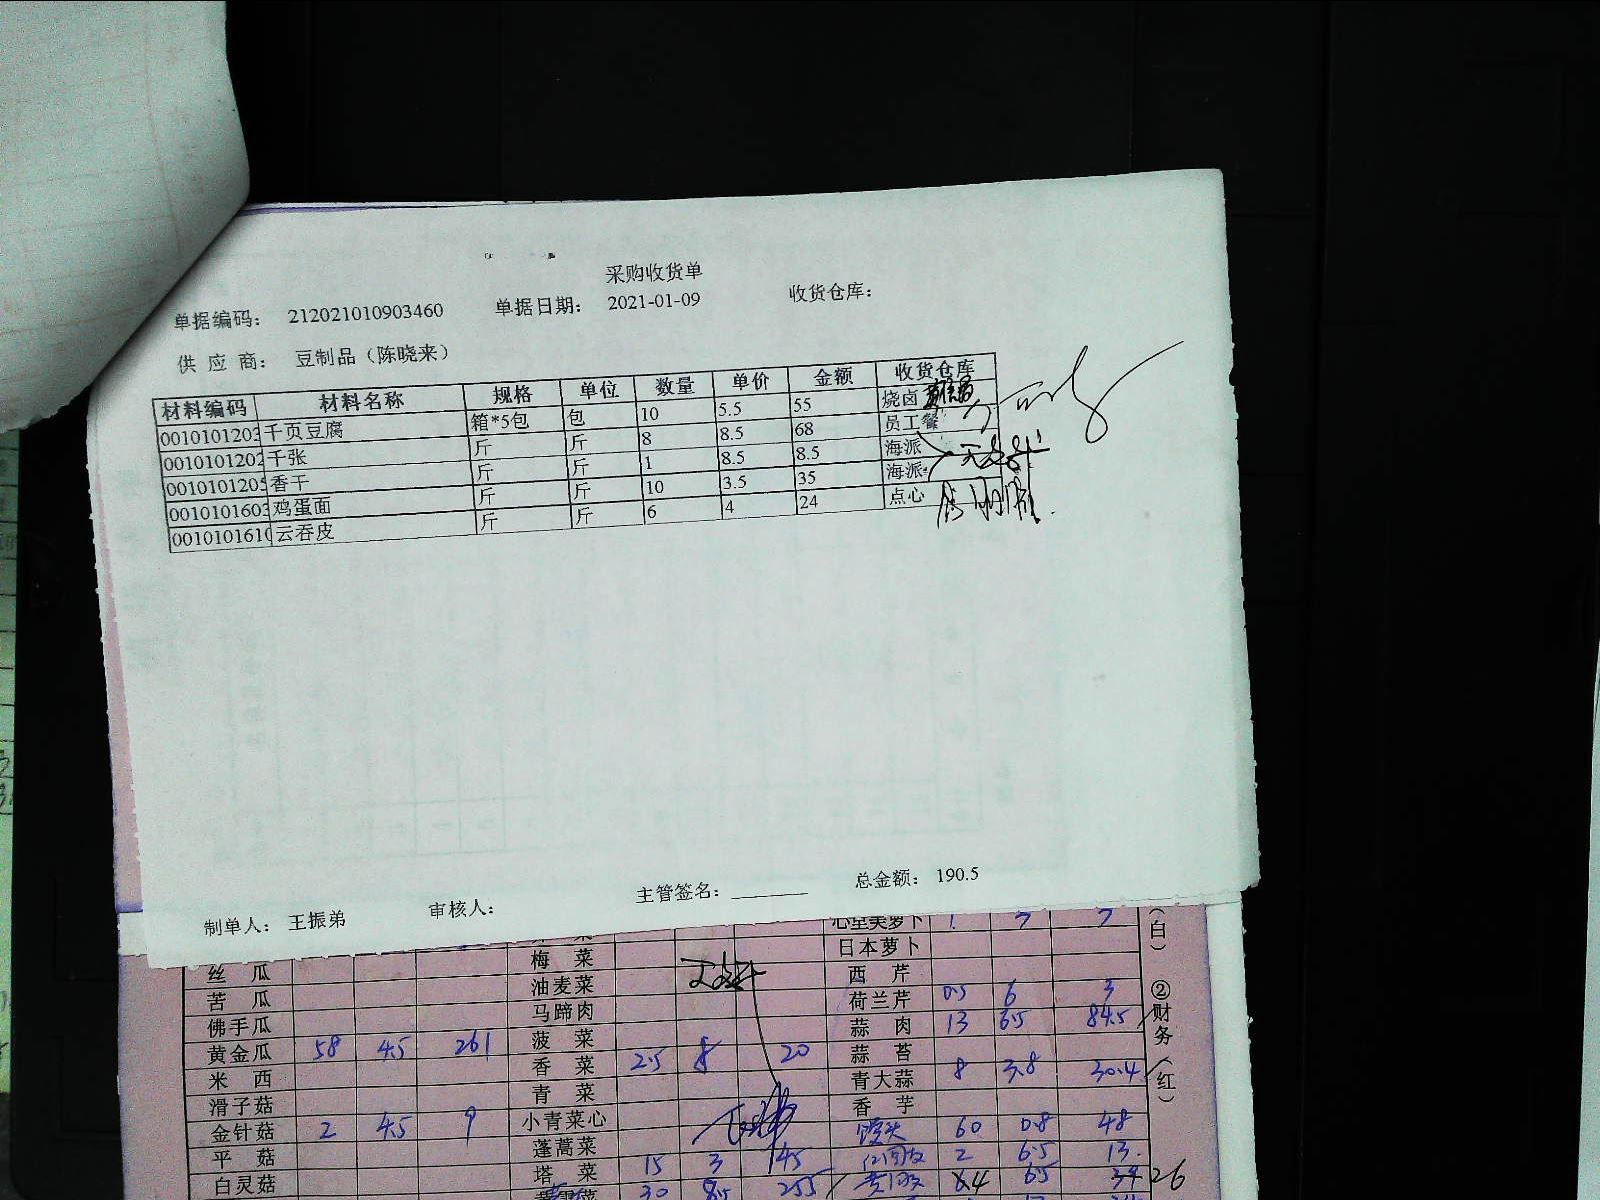 采购收货单
单据编码： 212021010903460 单据日期： 2021-01-09 收货仓库：
供 应 商： 豆制品（陈晓来）
材料编码 材料名称 规格 单位 数量 单价 金额 收货仓库
0010101203 千页豆腐 箱*5包 包 10 5.5 55 烧卤
0010101202 千张 斤 斤 8 8.5 68 员工餐
0010101205 香干 斤 斤 1 8.5 8.5 海派
0010101603 鸡蛋面 斤 斤 10 3.5 35 海派
0010101610 云吞皮 斤 斤 6 4 24 点心
制单人： 王振弟 审核人： 主管签名： 总金额： 190.5
心里美萝卜 1 7 7
丝 瓜 梅 菜 日本萝卜
苦 瓜 油麦菜 西 芹
佛手瓜 马蹄肉 荷兰芹 0.5 6 3
黄金瓜 58 4.5 261 菠 菜 蒜 肉 13 6.5 84.5
米 西 香 菜 2.5 8 20 蒜 苔
滑子菇 青 菜 青大蒜 8 3.8 30.4
金针菇 2 4.5 9 小青菜心 香 芋
平 菇 蓬蒿菜 馒头 60 0.8 48
白灵菇 塔 菜 15 3 45 2 6.5 13
30 8.5 255 4 6.5 26
（白）
②财务（红）